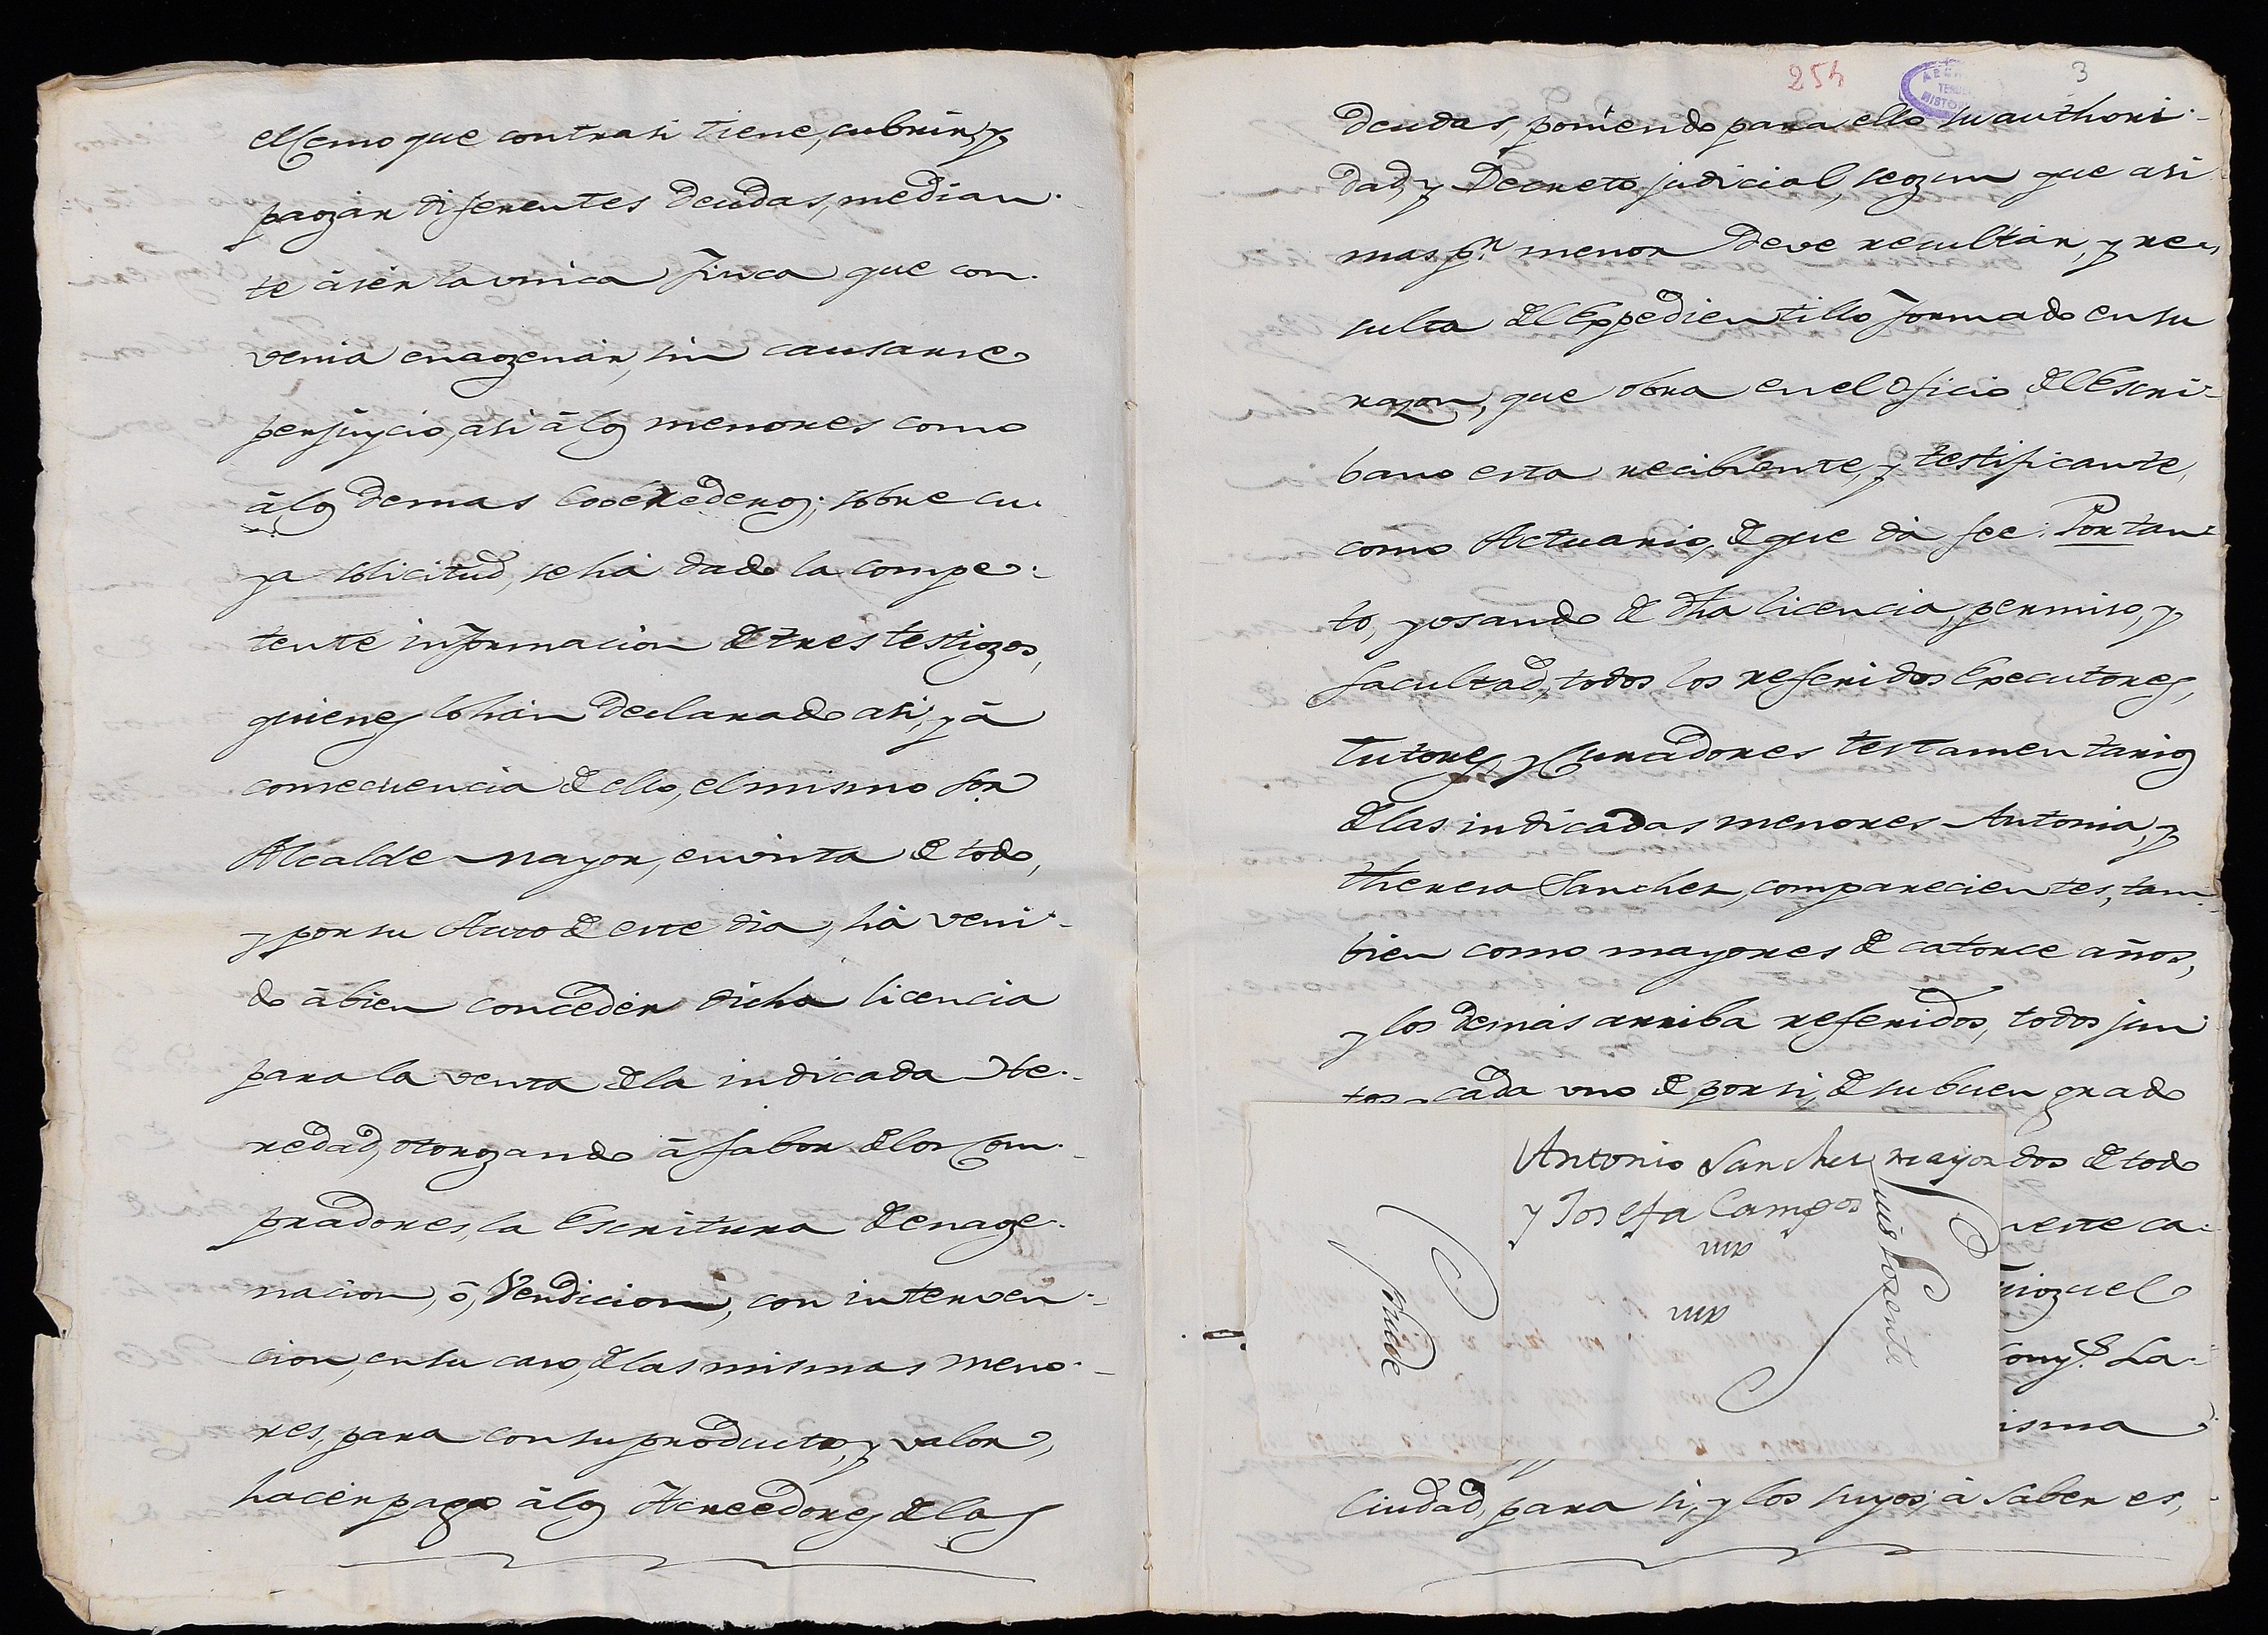 el Censo que contrasi tiene, cubrir, y
pagar diferentes Deudas, median-
te à sèr la vnica Finca que con-
venia enagenàr, sin causarse
perjuycio, asi à los menores como
à los Demas Coherederos; sobre cu-
ya solicitud, se hà dado la compe-
tente informacion de tres testigos,
quienes lo hàn Declarado asi, y à
consecuencia de ello, el mismo Sor
Alcalde mayor, en vista de todo,
y por su Auto de este dia, hà veni-
do à bien concedèr dicha licencia
para la venta de la indicada He-
redad, otorgando à fabor de los Com-
pradores, la Escritura de enage-
nacion, ò, Vendicion, con interven-
cion, en su caso, de las mismas meno-
res, para con su producto, y valor,
hacèr pago à los Acreedores de las
254
3
Deudas, poniendo para ello su authori-
dad, y Decreto judicial, segun que asi
mas pr menor Deve resultàr, y re-
sulta del Expedientillo formado en su
razon, que obra en el Oficio del Escri-
bano esta recibiente, y testificante,
como Actuario, de que dà fee: Por tan-
to, y vsando de dha licencia, permiso, y
facultad, todos los referidos Executores,
Tutores, y Curadores testamentarios
de las indicadas menores Antonia, y
Theresa Sanchez, comparecientes, tam-
bien como mayores de catorce años,
y los demàs arriba referidos, todos jun-
tos y cada vno de por si, de su buen grado
Antonio Sanchez mayor dos de todo
y Josefa Campos
Luis Lorente
este ca-
iguel
Cony.s La-
isma
Ciudad, para si, y los suyos, à saber es,